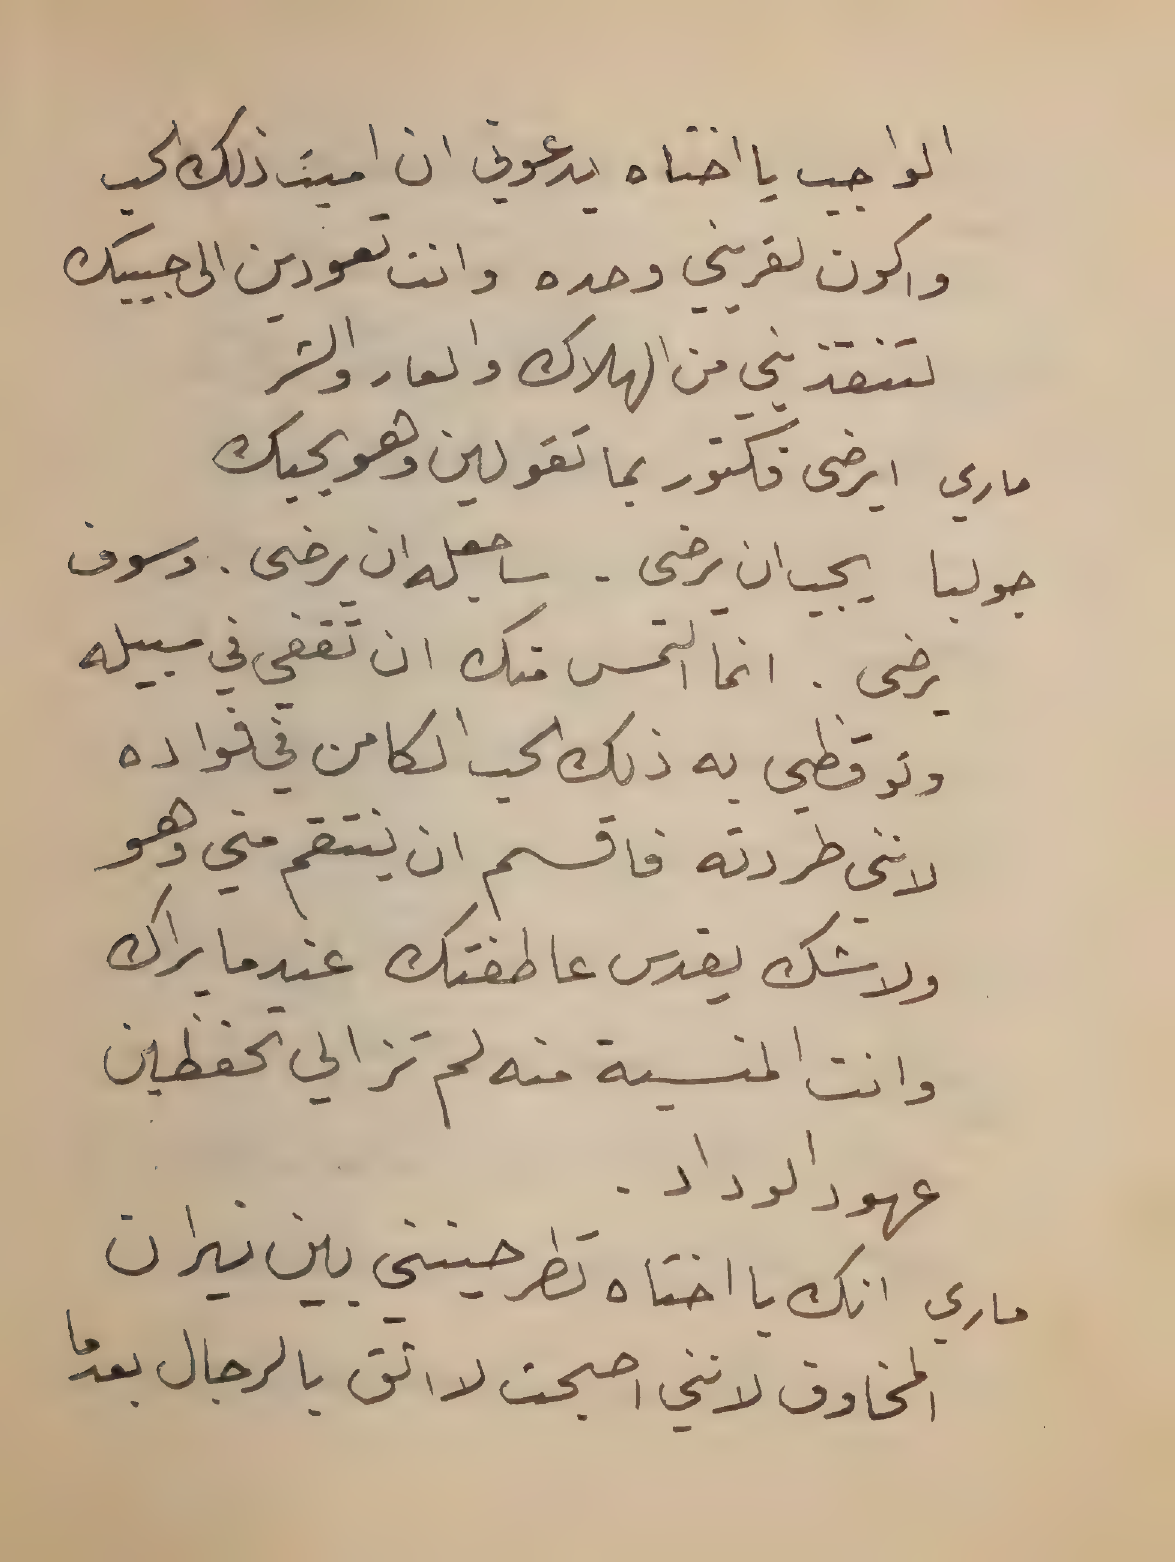 الواجب يا اختاه يدعوني ان اميت ذلك الحب
واكون لقريني وحده وانت تعودين الى حبيبك
لتنقذيني من الهلاك والعار والشر
ماري ايرضى فكتور بما تقولين وهو يحبك
جوليا يجب ان يرضى . ساجعله ان يرضى . وسوف
يرضى . انما التمس منك ان تقفي في سبيله
وتوقظي به ذلك الحب الكامن في فواده
لانني طردته فاقسم ان ينتقم مني وهو
ولاشك يقدس عاطفتك عندما يراك
وانت المنسية منه لم تزالي تحفظين
عهود الوداد .
ماري انك يا اختاه تطرحينني بين نيران
المخاوف لانني اصبحت لا اثق بالرجال بعدما